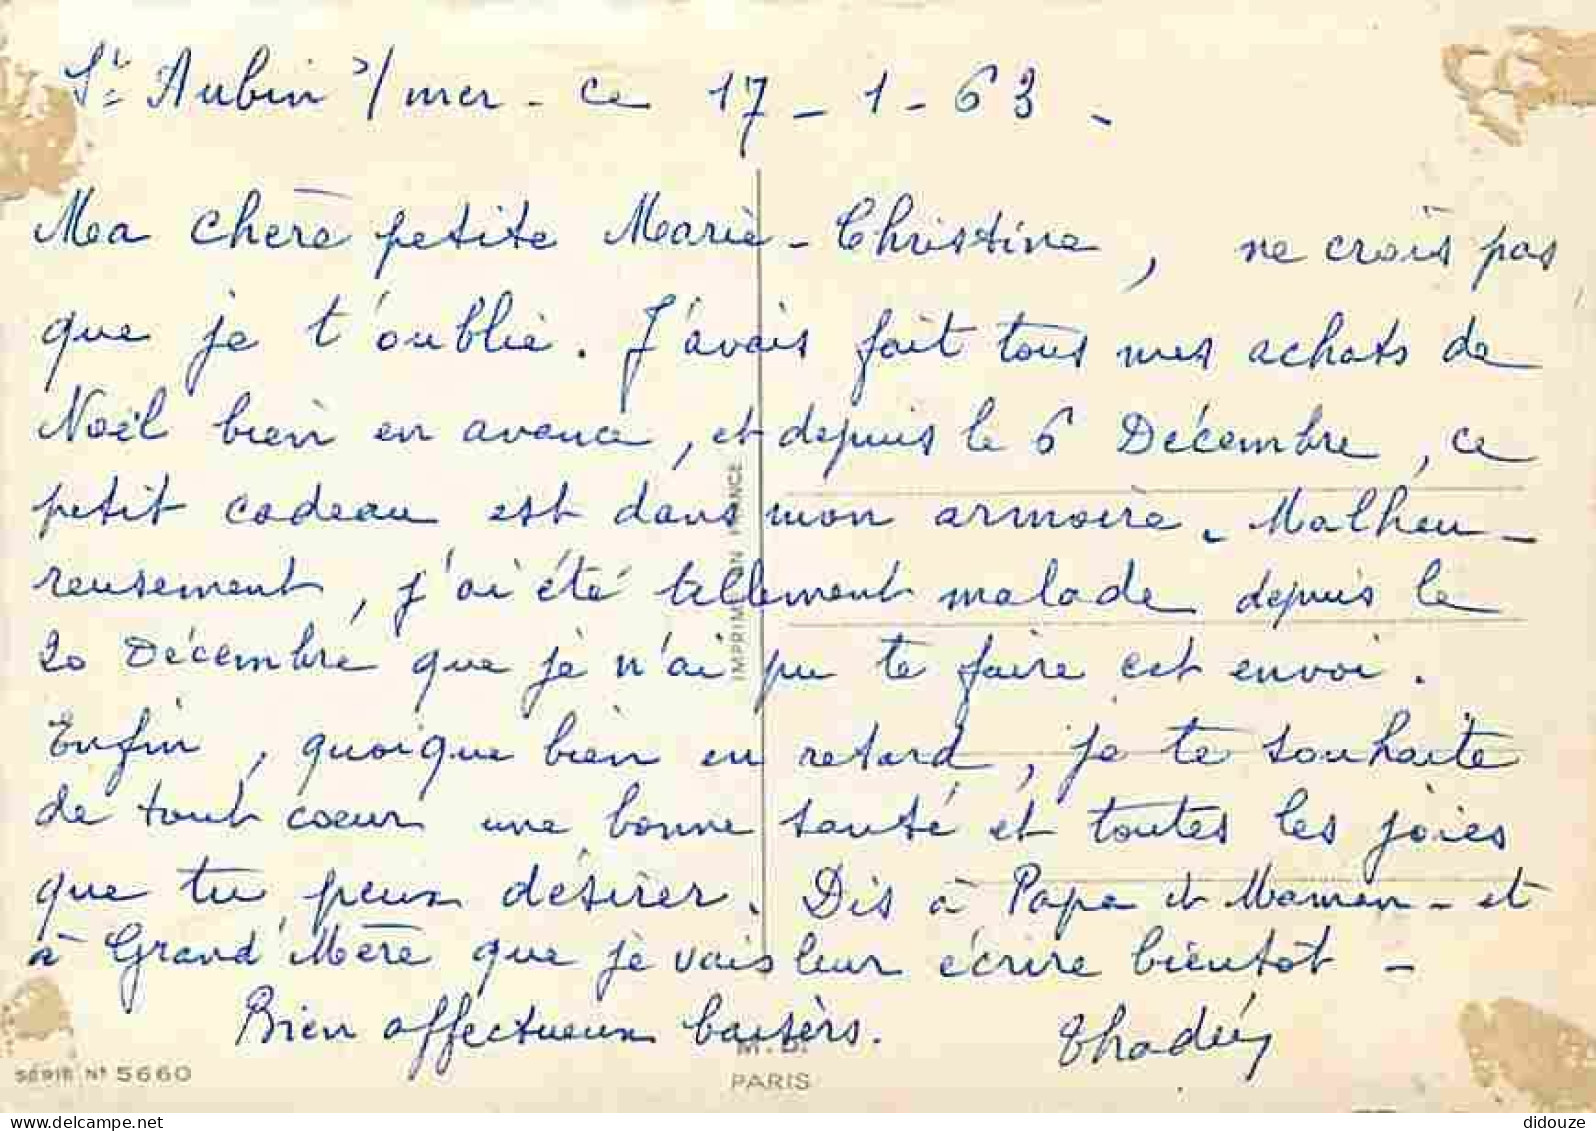 St Aubin s/mer - ce 17 - 1 - 63 -
Ma chère petite Marie-Christine, ne crois pas
que je t'oublie. J'avais fait tous mes achats de
Noël bien en avance, et depuis le 6 Décembre, ce
petit cadeau est dans mon armoire. Malheu-
reusement, j'ai été tellement malade depuis le
20 Décembre que je n'ai pu te faire cet envoi.
Enfin, quoique bien en retard, je te souhaite
de tout coeur une bonne santé et toutes les joies
que tu peux désirer. Dis à Papa et Maman - et
à Grand'Mère que je vais leur écrire bientôt -
Bien affectueux baisers.
IMPRIMÉ EN FRANCE
SÉRIE N° 5660
M.D.
PARIS
didouze